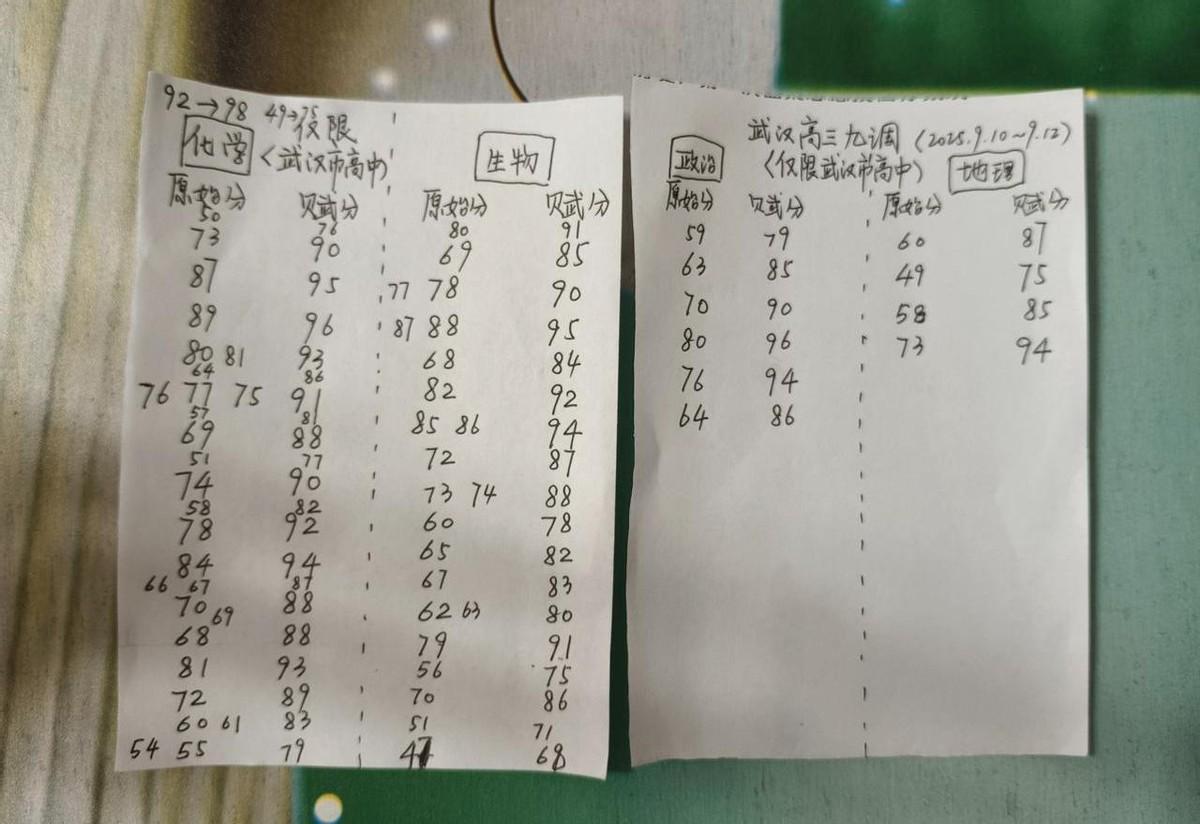 92→98 49→75
化学 仅限
<武汉市高中>
生物
原始分 贝武分 原始分 贝武分
50 76 80 91
73 90 69 85
87 95 77 78 90
89 96 87 88 95
80 81 93 68 84
64 86
76 77 75 91 82 92
57 81
69 88 85 86 94
51 77 72 87
74 90 73 74 88
58 82
78 92 60 78
84 94 65 82
66 67 87 67 83
70 88 62 63 80
69
68 88 79 91
81 93 56 75
72 89 70 86
60 61 83 51 71
54 55 79 47 68
武汉高三九调 (2025.9.10~9.12)
政治 <仅限武汉市高中> 地理
原始分 贝武分 原始分 贝武分
59 79 60 87
63 85 49 75
70 90 58 85
80 96 73 94
76 94
64 86